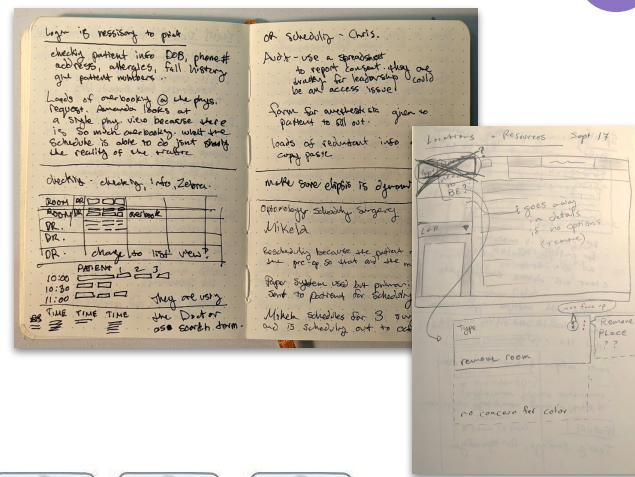 Login is nessisary to print
checking patient info DOB, phone#
address, allergies, fall history
give patient numbers..
Loads of overbooking @ the phys.
request. Amanda looks at
a single phy. view because there
is so much overbooking. what the
schedule is able to do isnt
the reality of the
checking - checking, info, Zebra.
ROOM DR
ROOM DR overbook
DR.
DR.
DR. change to list view?
PATIENT 1 2 3
10:00
10:30
11:00
They are using
the Doctor
as search term.
TIME TIME TIME
OR scheduling - Chris.
Audit - use a spreadsheet
to report consent. they are
for leadership could
be an access issue
form for anesthesia given to
patient to fill out.
loads of redundant info
copy paste.
make sure elipsis is
scheduling surgery
Mikela
Rescheduling because the patient
the pre-op so that and the
Paper system used but
sent to patient for scheduling
Mikela schedules for 3
and is scheduling out to
Locations + Resources Sept 17
BE?
goes away
in details
is no options
(remove)
Type
remove room
Remove
Place
??
no concern for color